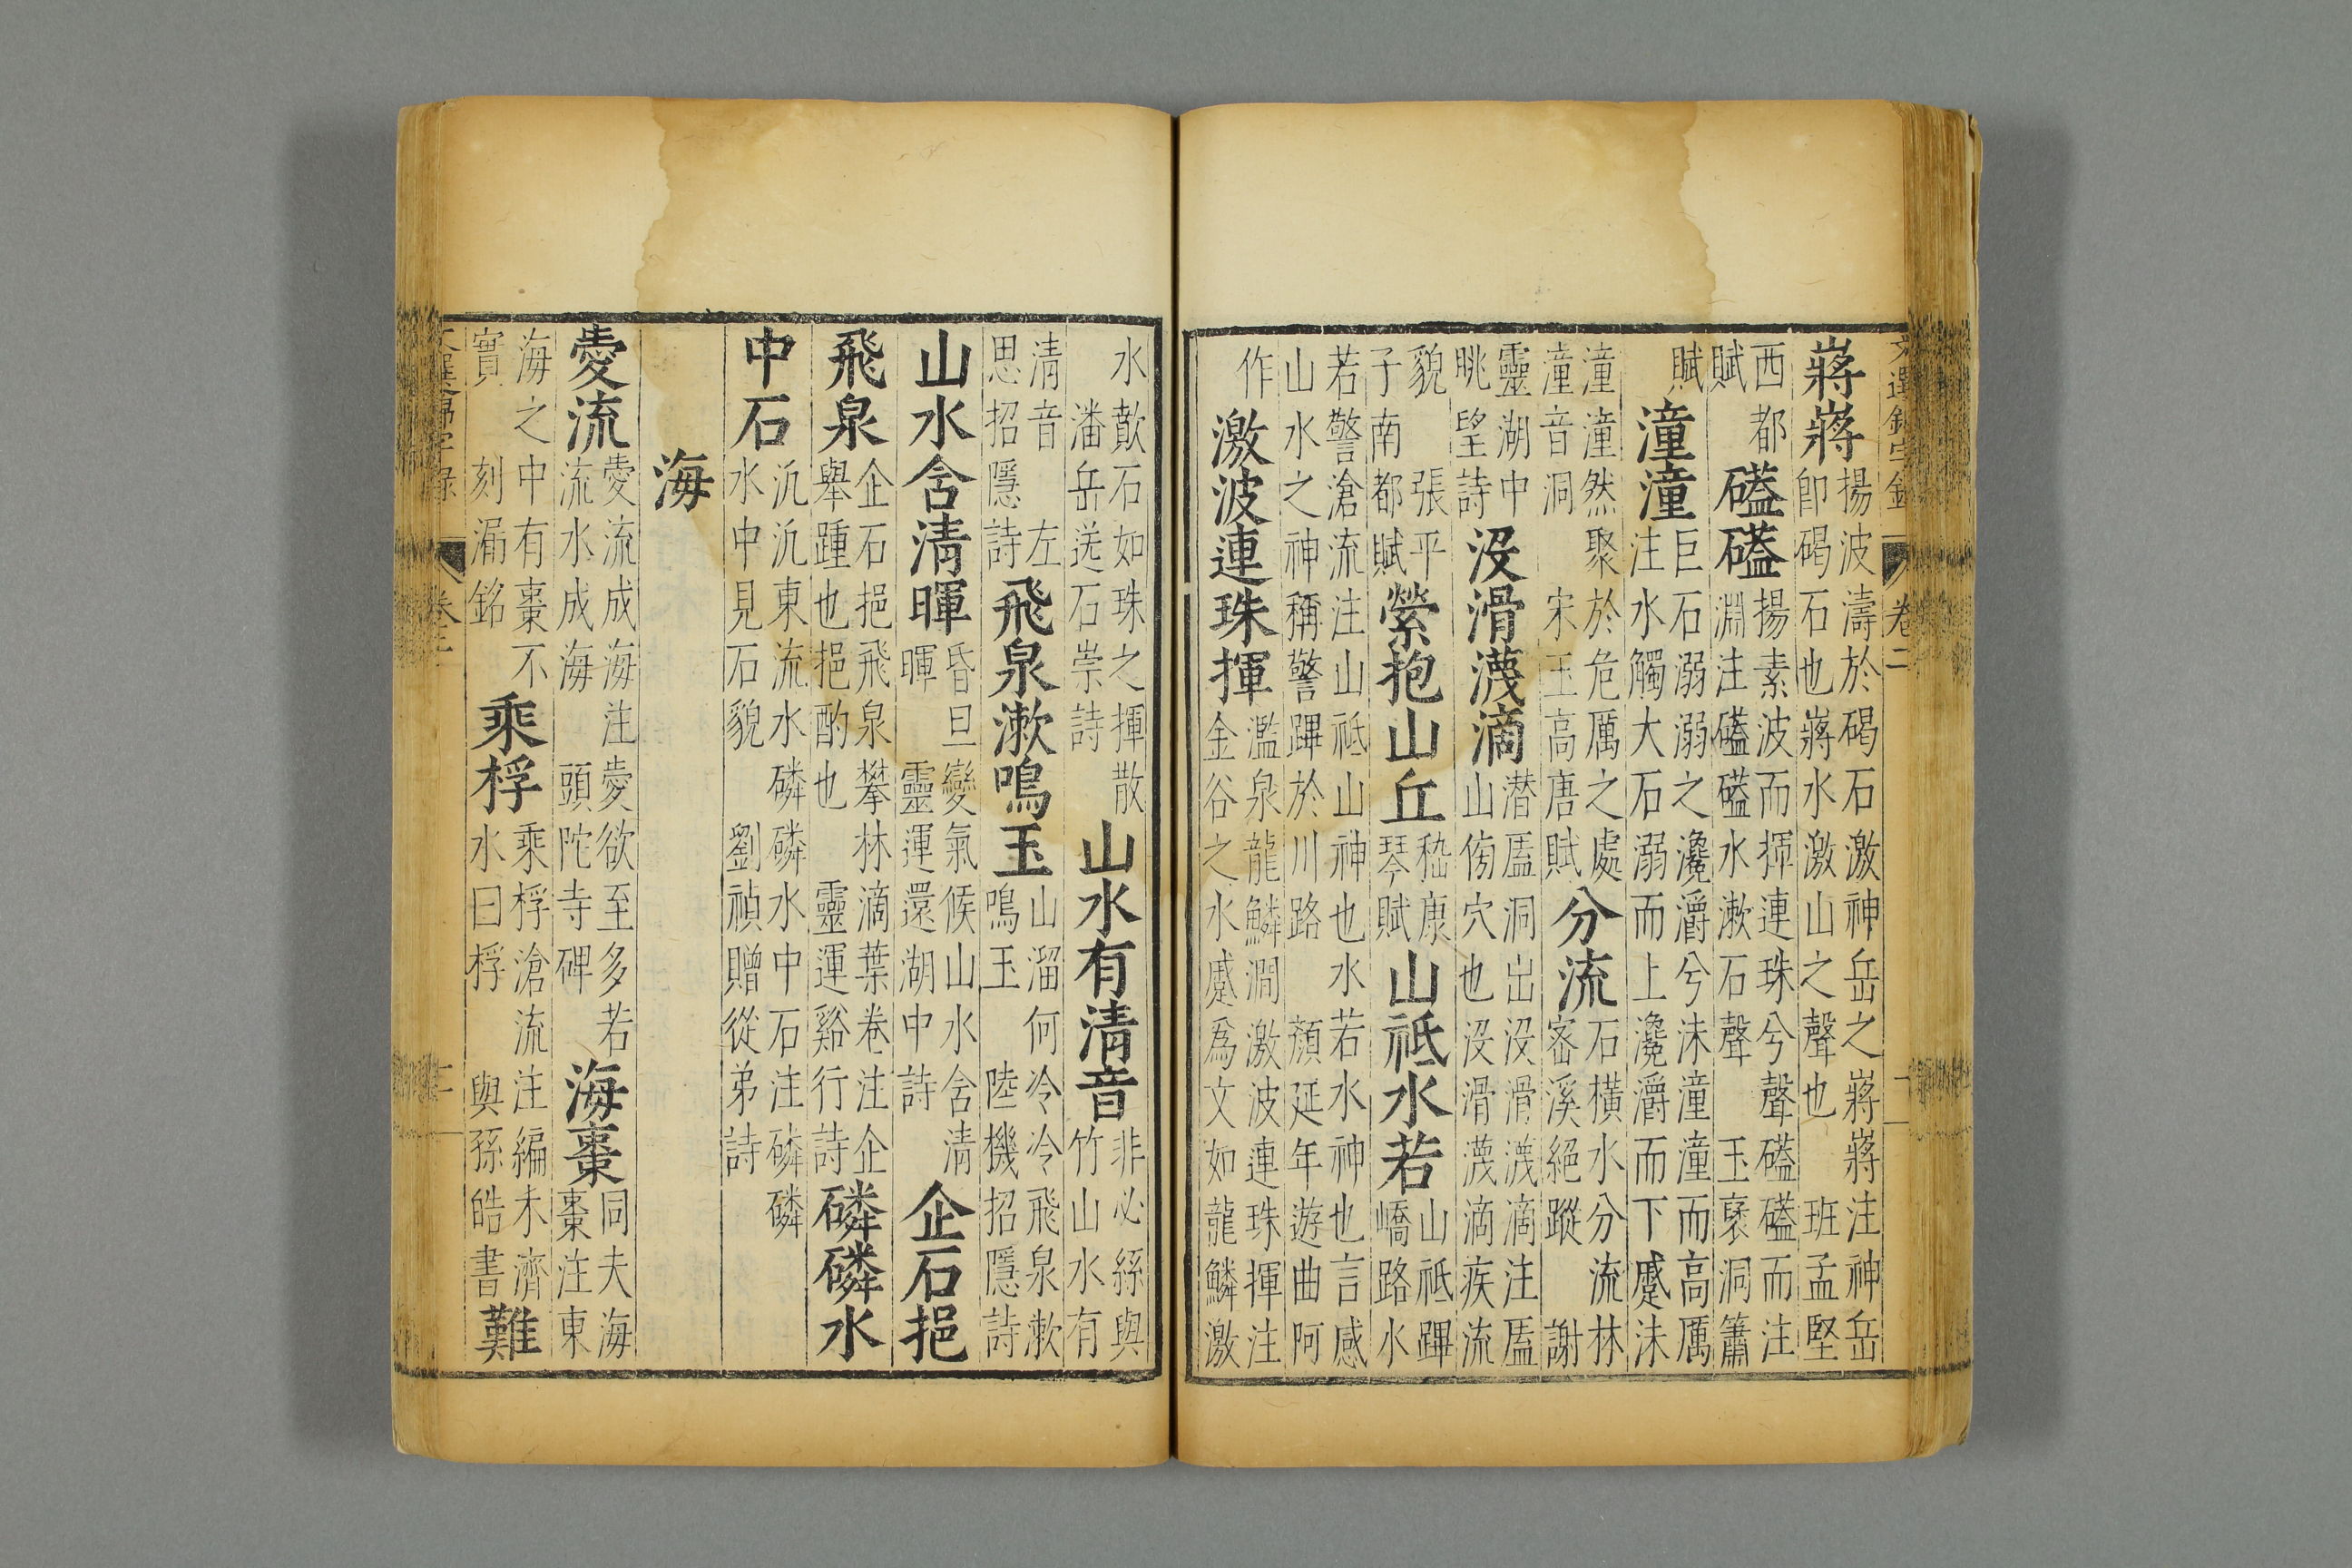 文選錦字錄 卷二 十一
蔣蔣揚波濤於碣石激神岳之蔣蔣注神岳即碣石也蔣水激山之聲也 班孟堅
西都賦 礚礚揚素波而揮連珠兮聲礚礚而注淵注礚礚水漱石聲 玉褒洞簫
賦 潼潼巨石溺溺之瀺灂兮沫潼潼而高厲注水觸大石溺而上瀺灂而下蹙沫
潼潼然聚於危厲之處潼音洞 宋玉高唐賦 分流石橫水分流林密溪絕蹤 謝
靈湖中眺望詩 沒滑瀎滴潛㕎洞出沒滑瀎滴注㕎山傍穴也沒滑瀎滴疾流
貌 張平子南都賦 縈抱山丘嵇康琴賦 山祗水若山祗蹕嶠路水
若警滄流注山祗山神也水若水神也言感山水之神稱警蹕於川路 顏延年遊曲阿
作 激波連珠揮濫泉龍鱗澗激波連珠揮注金谷之水蹙爲文如龍鱗激
水歕石如珠之揮散 潘岳送石崇詩 山水有清音非必絲與竹山水有
清音 左思招隱詩 飛泉漱鳴玉山溜何泠泠飛泉漱鳴玉 陸機招隱詩
山水含清暉昏旦變氣候山水含清暉 靈運還湖中詩 企石挹
飛泉企石挹飛泉攀林滴葉卷注企舉踵也挹酌也 靈運谿行詩 磷磷水
中石汎汎東流水磷磷水中石注磷磷水中見石貌 劉禎贈從弟詩
海
愛流愛流成海注愛欲至多若流水成海 頭陀寺碑 海棗同夫海棗注東
海之中有棗不實 刻漏銘 乘桴乘桴滄流注編未濟水曰桴 與孫皓書 難
卷二